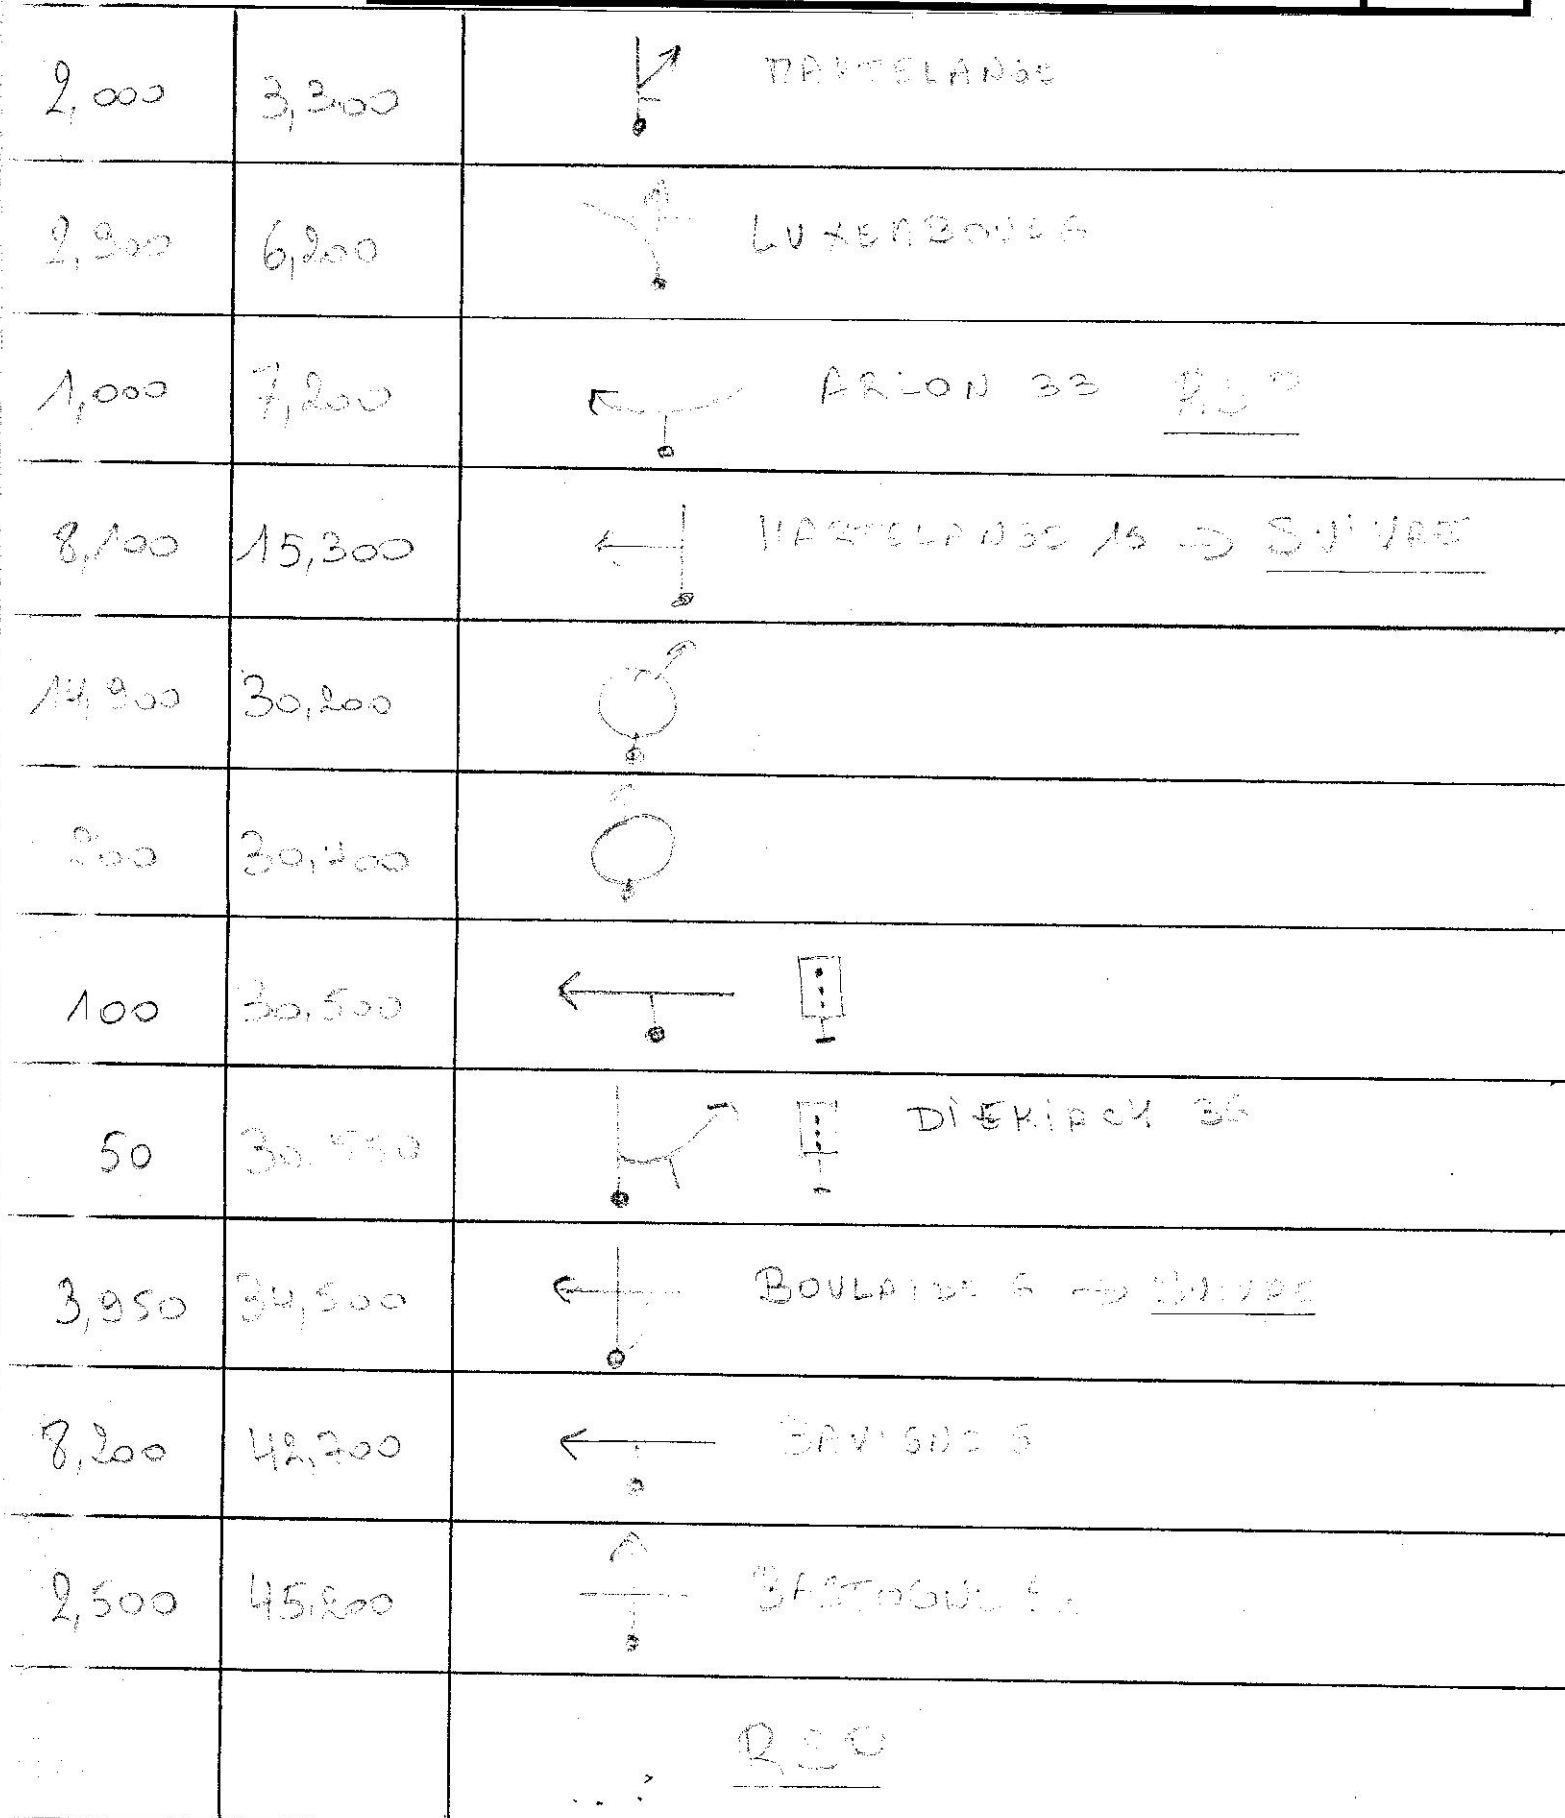 2,000 3,300 MARTELANGE
2,900 6,200 LUXEMBOURG
1,000 7,200 ARLON 33
8,100 15,300 MARTELANGE 15 → SUIVRE
14,900 30,200
200 30,400
100 30.500
50 30.550 DIEKIRCH 36
3,950 34,500 BOULAIDE 6 → SUIVRE
8,200 42,700 BAVIGNE 6
2,500 45,200 BASTOGNE